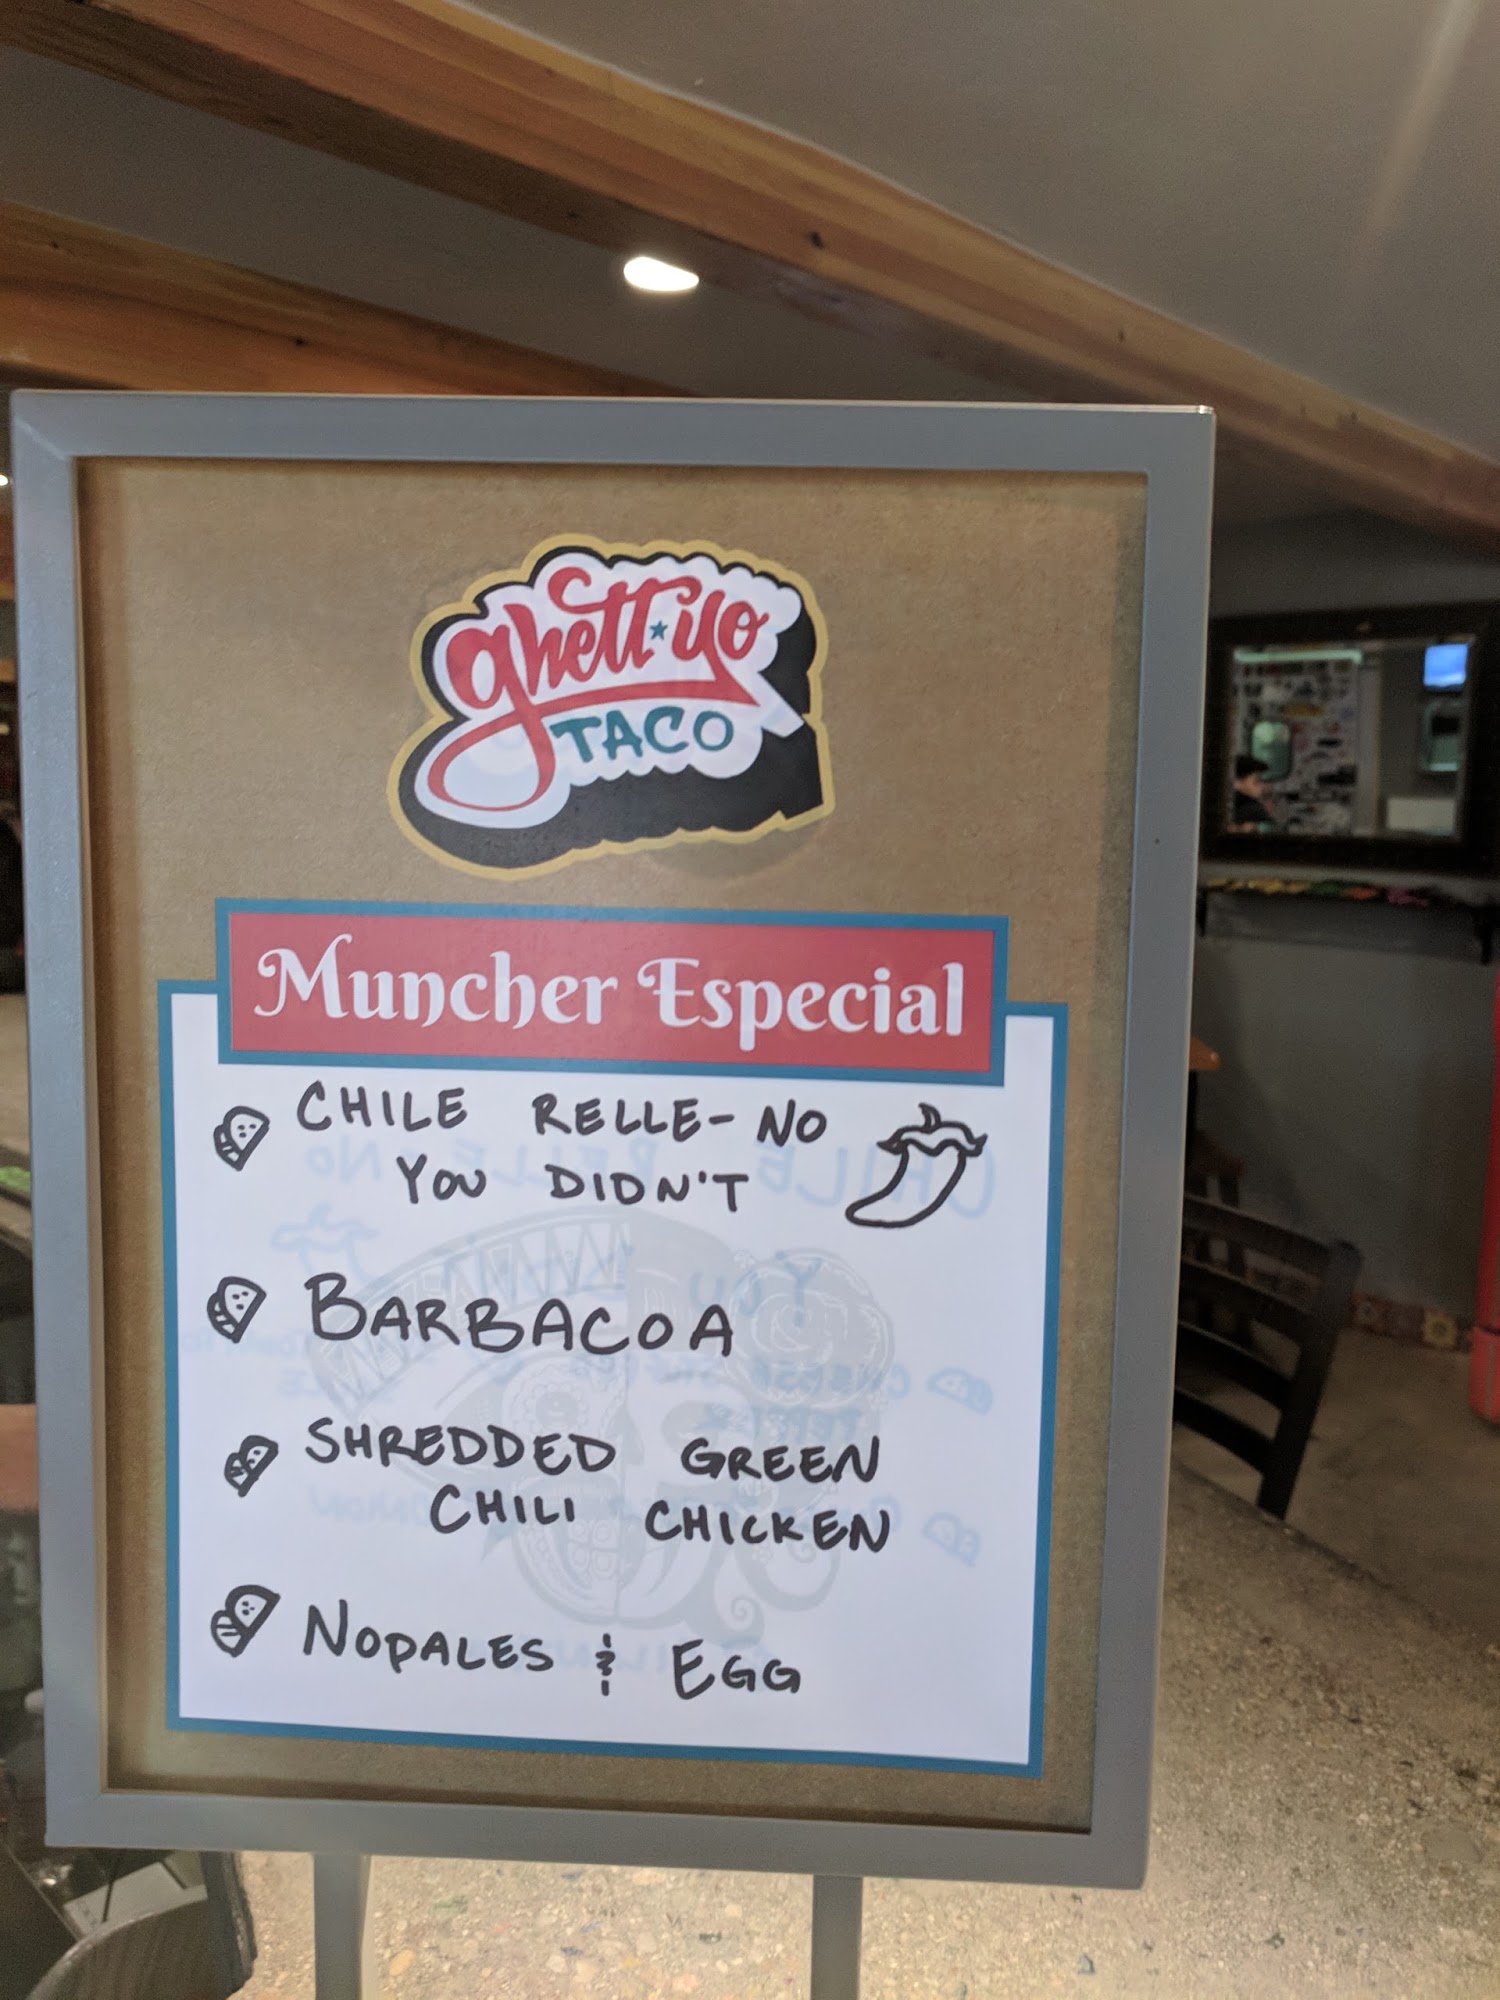 ghett★yo
TACO
Muncher Especial
CHILE RELLE-NO
YOU DIDN'T
BARBACOA
SHREDDED GREEN
CHILI CHICKEN
NOPALES & EGG